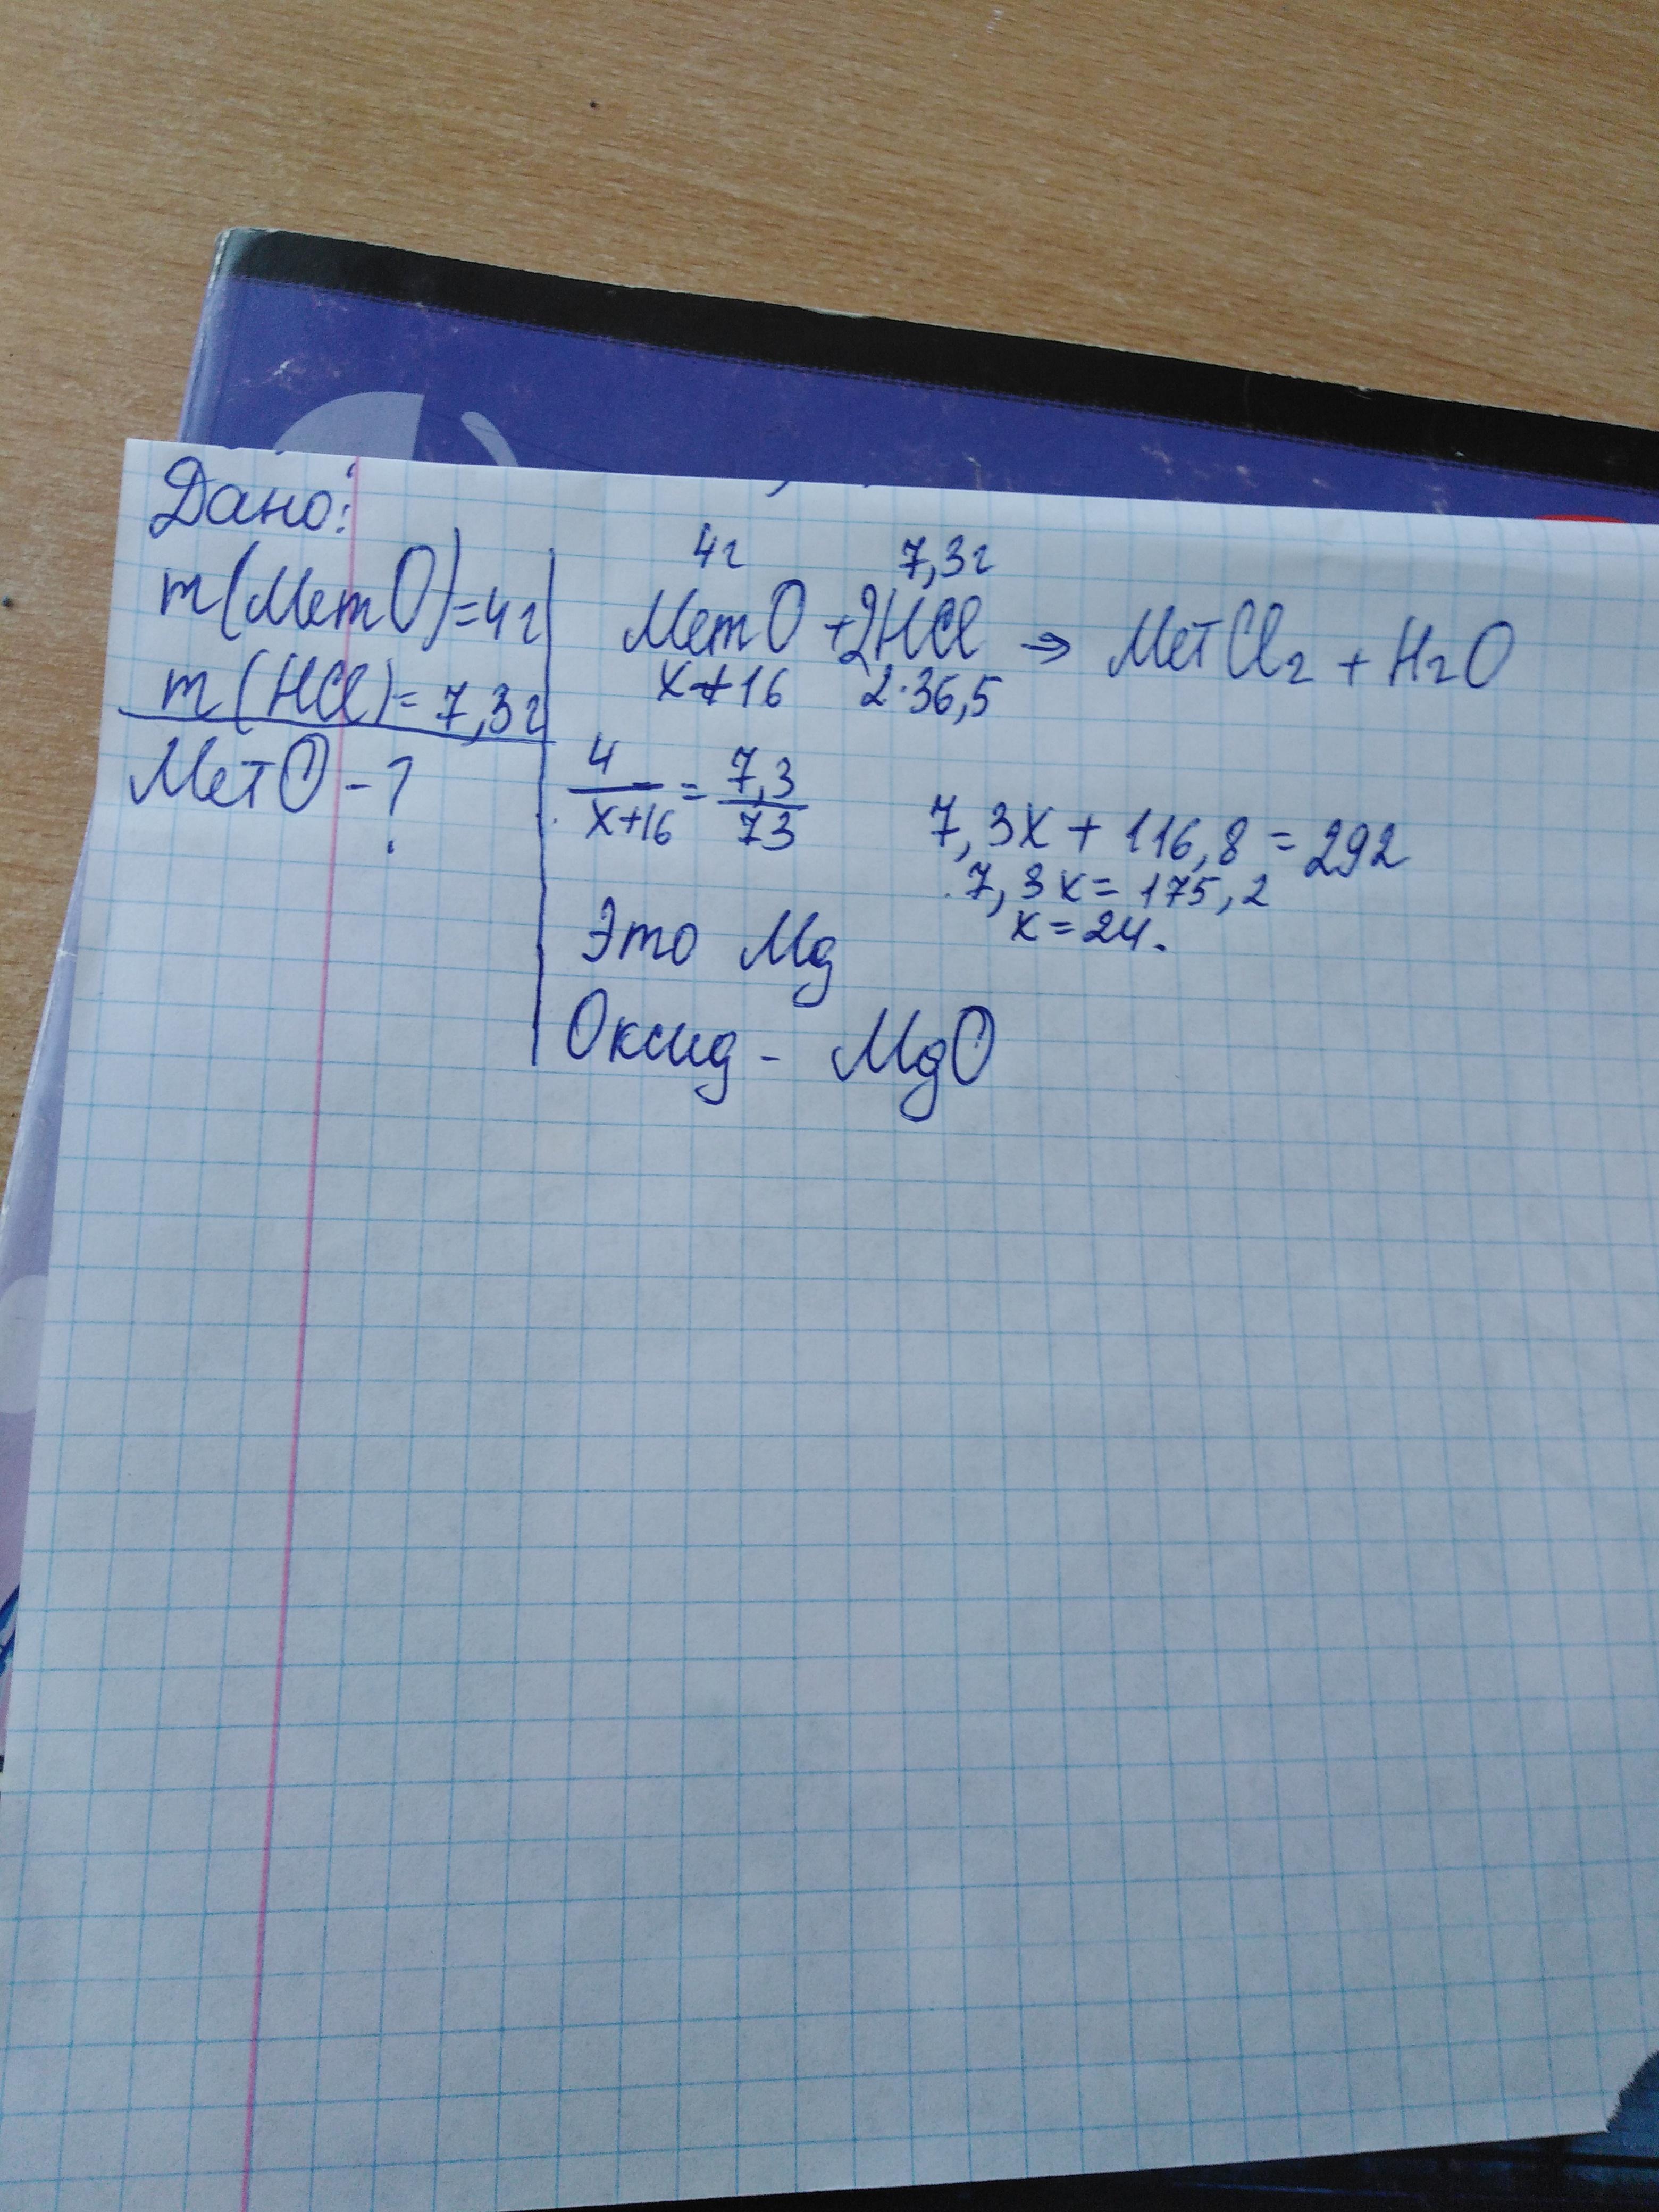 Дано:
m(МетO)=4г
m(HCl)=7,3г
МетO-?
4г 7,3г
МетO+2HCl → МетCl₂+H₂O
x+16 2·36,5
4/x+16 = 7,3/73
7,3x+116,8=292
7,3x=175,2
x=24.
Это Mg
Оксид - MgO